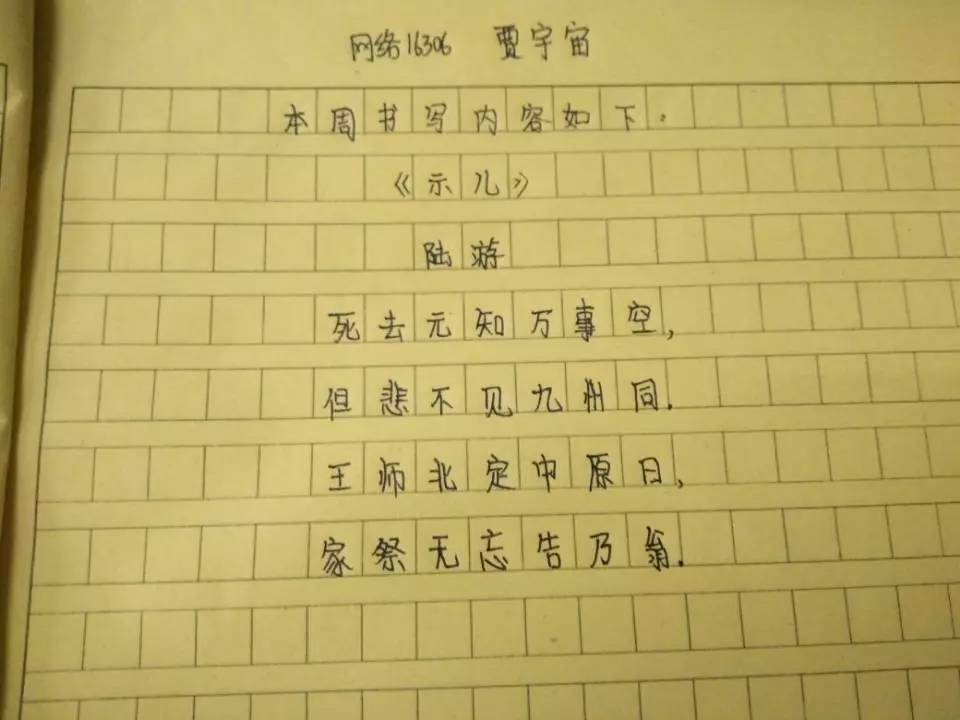 网络16306 贾宇宙
本周书写内容如下.
《示儿》
陆游
死去元知万事空,
但悲不见九州同.
王师北定中原日,
家祭无忘告乃翁.